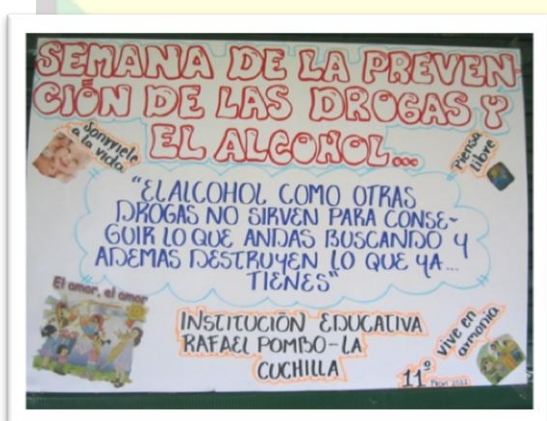 SEMANA DE LA PREVEN-
CIÓN DE LAS DROGAS Y
EL ALCOHOL...
Sonriele
a la vida
Piensa
libre
"EL ALCOHOL COMO OTRAS
DROGAS NO SIRVEN PARA CONSE-
GUIR LO QUE ANDAS BUSCANDO Y
ADEMAS DESTRUYEN LO QUE YA...
TIENES"
El amor, el amor
INSTITUCIÓN EDUCATIVA
RAFAEL POMBO-LA
CUCHILLA
Vive en
armonia
11°